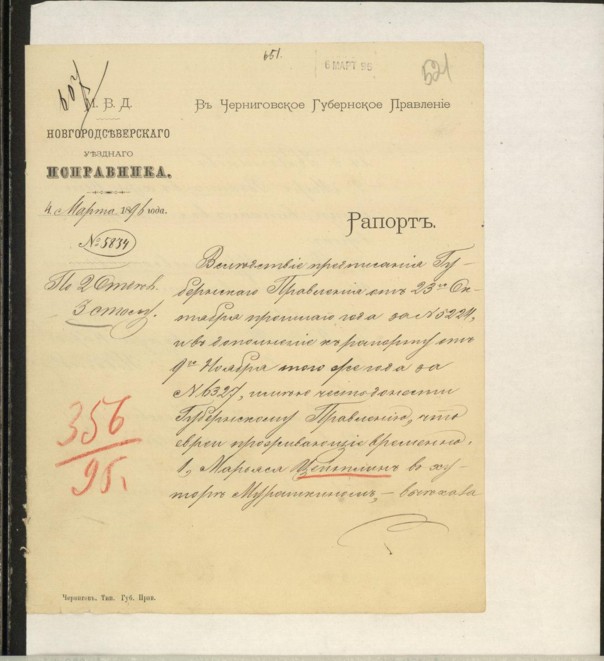 651.
6 МАРТ 96
521
607
М. В. Д.
НОВГОРОДСѢВЕРСКАГО
УѢЗДНАГО
ИСПРАВНИКА.
4 Марта 1896 года.
№ 5834
По 2 Отдѣл.
3 столу.
356
95 г.
Въ Черниговское Губернское Правленіе
Рапортъ.
Вслѣдствіе предписанія Гу-
бернскаго Правленія отъ 23го Ок-
тября прошлаго года за № 5224,
и въ дополненіе къ рапорту отъ
9го Ноября того же года за
№ 6327, имѣю честь донести
Губернскому Правленію, что
евреи проживающіе временно:
1, Марьяся Цейтлинъ въ ху-
торѣ Мурашкиномъ, –
Черниговъ. Тип. Губ. Прав.